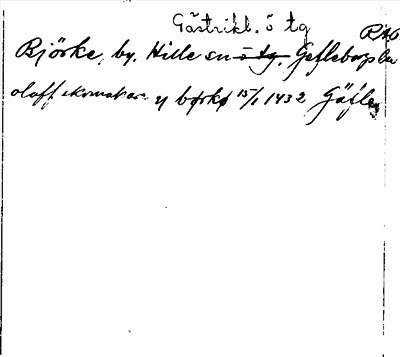 Gästrikl. ö tg RAO
Björke, by. Hille sn ö tg. Gefleborgs län
oloff skomakare y børkø 15/1 1432 Gäfle